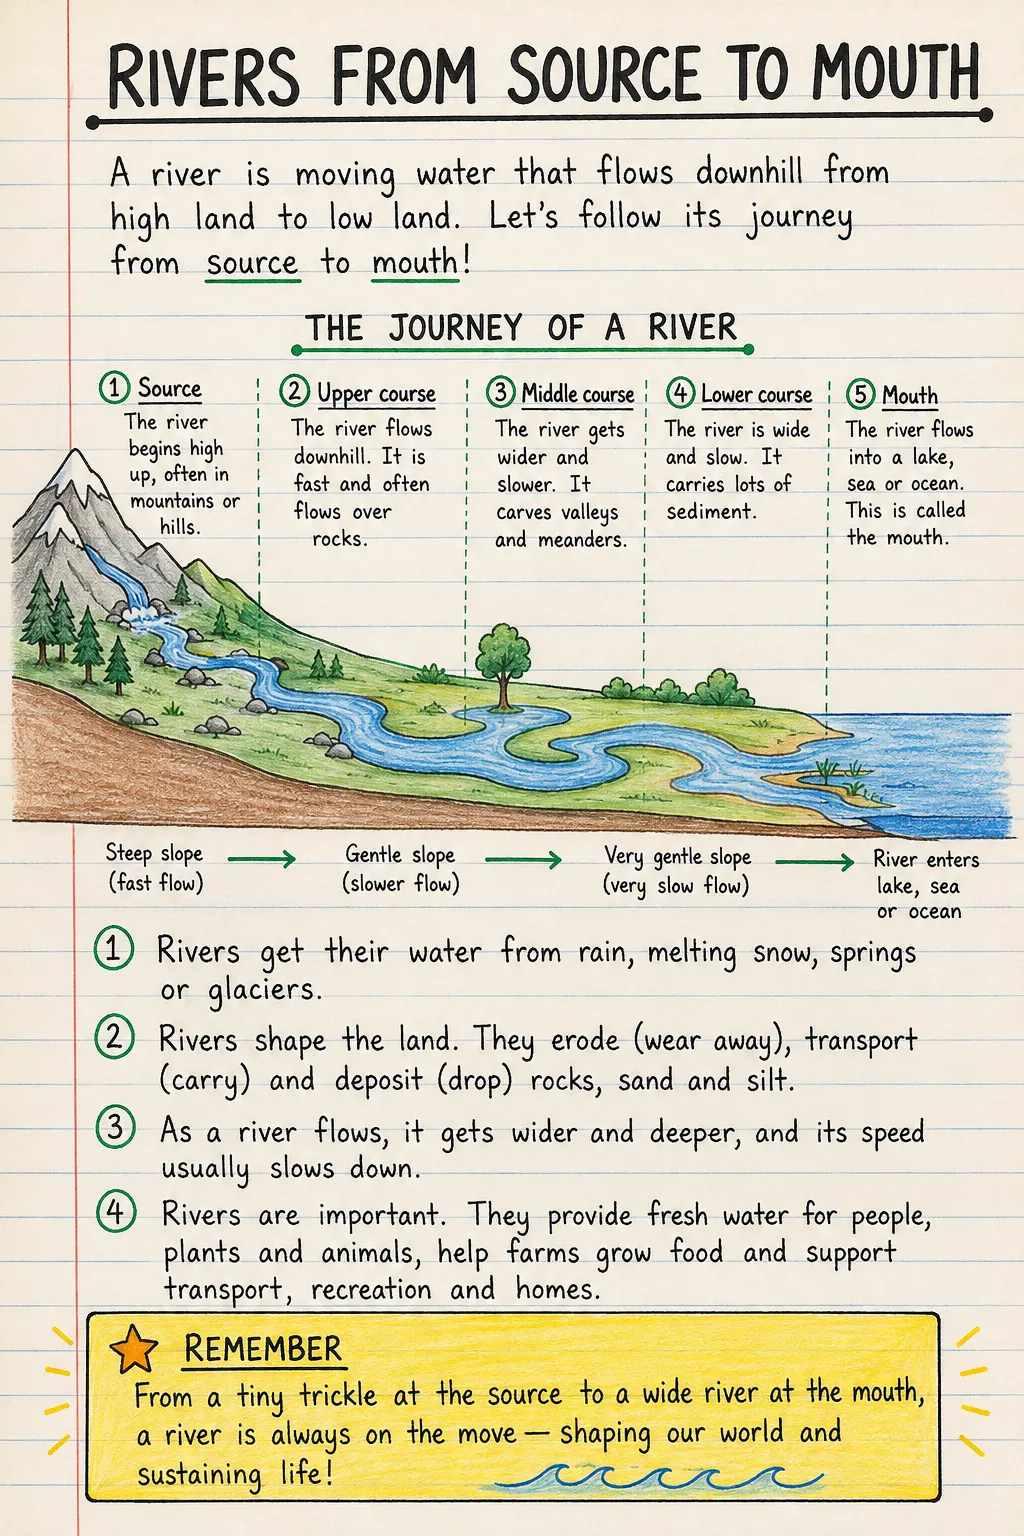 RIVERS FROM SOURCE TO MOUTH
A river is moving water that flows downhill from
high land to low land. Let's follow its journey
from source to mouth!
THE JOURNEY OF A RIVER
1 Source
The river
begins high
up, often in
mountains or
hills.
2 Upper course
The river flows
downhill. It is
fast and often
flows over
rocks.
3 Middle course
The river gets
wider and
slower. It
carves valleys
and meanders.
4 Lower course
The river is wide
and slow. It
carries lots of
sediment.
5 Mouth
The river flows
into a lake,
sea or ocean.
This is called
the mouth.
Steep slope
(fast flow)
Gentle slope
(slower flow)
Very gentle slope
(very slow flow)
River enters
lake, sea
or ocean
1 Rivers get their water from rain, melting snow, springs
or glaciers.
2 Rivers shape the land. They erode (wear away), transport
(carry) and deposit (drop) rocks, sand and silt.
3 As a river flows, it gets wider and deeper, and its speed
usually slows down.
4 Rivers are important. They provide fresh water for people,
plants and animals, help farms grow food and support
transport, recreation and homes.
REMEMBER
From a tiny trickle at the source to a wide river at the mouth,
a river is always on the move — shaping our world and
sustaining life!